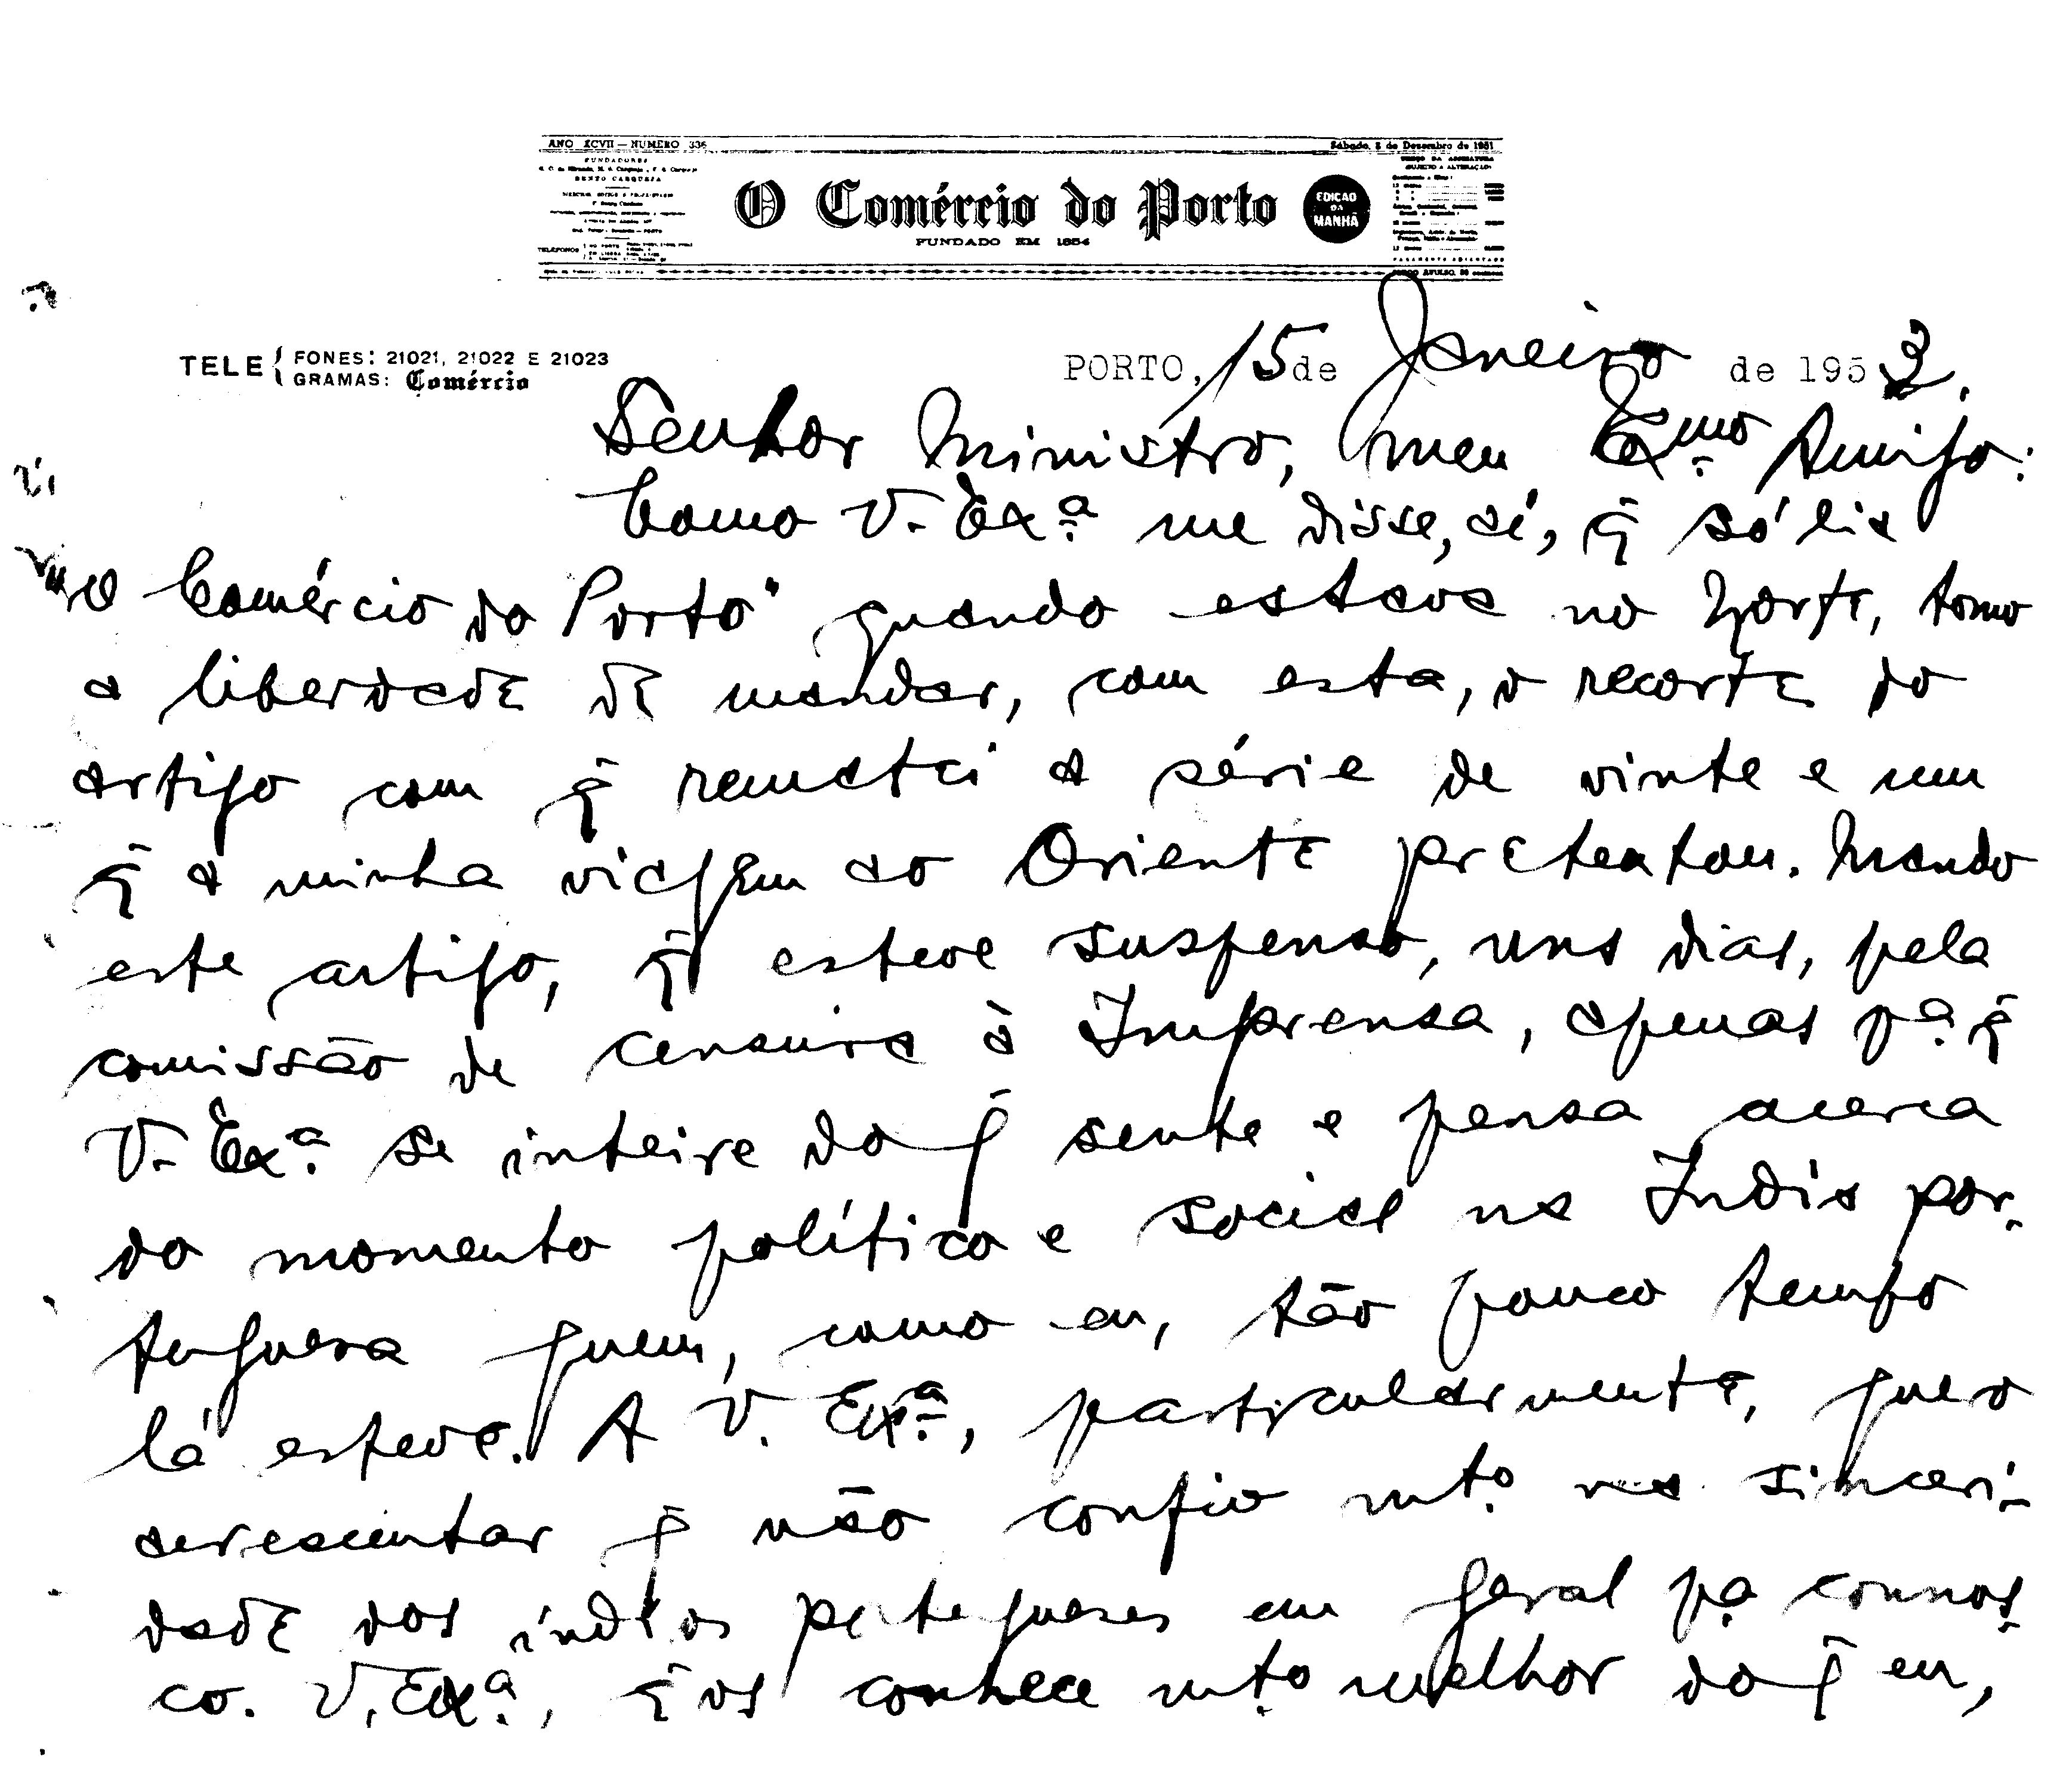 ANO XCVII — NUMERO 336
Sábado, 8 de Dezembro de 1951
FUNDADORES
BENTO CARQUEJA
O Comércio do Porto
FUNDADO EM 1854
EDIÇÃO DA MANHÃ
TELEFONES
TELE { FONES: 21021, 21022 E 21023
GRAMAS: Comércio
PORTO, 15 de Janeiro de 1953.
Senhor Ministro, meu Exmo. Amigo:
Como V. Exª. me disse, aí, q̃ só lia
"O Comércio do Porto" quando estava no Norte, tomo
a liberdade de mandar, com esta, o recorte do
artigo com q̃ rematei a série de vinte e um
q̃ a minha viagem ao Oriente pretextou. Mando
este artigo, q̃ esteve suspenso, uns dias, pela
comissão de censura à Imprensa, apenas pª. q̃
V. Exª. se inteire do q̃ sente e pensa acerca
do momento político e social na Índia por-
tuguesa quem, como eu, tão pouco tempo
lá esteve. A V. Exª., particularmente, quero
acrescentar q̃ não confio mtº. na sinceri-
dade dos índios portugueses em geral pª connos-
co. V. Exª., q̃ os conhece mtº. melhor do q̃ eu,